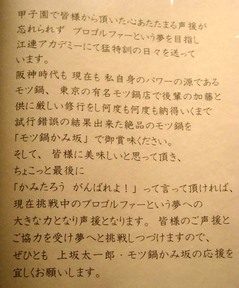 甲子園で皆様から頂いた心あたたまる声援が
忘れられず プロゴルファーという夢を目指し
江連アカデミーにて猛特訓の日々を送って
います。
阪神時代も現在も私自身のパワーの源である
モツ鍋、東京の有名モツ鍋店で後輩の加藤と
供に厳しい修行をし何度も何度も納得いくまで
試行錯誤の結果出来た絶品のモツ鍋を
「モツ鍋かみ坂」で御賞味ください。
そして、皆様に美味しいと思って頂き、
ちょこっと最後に
「かみたろう がんばれよ！」って言って頂ければ、
現在挑戦中のプロゴルファーという夢への
大きな力となり声援となります。皆様のご声援と
ご協力を受け夢へと挑戦しつづけますので、
ぜひとも 上坂太一郎・モツ鍋かみ坂の応援を
宜しくお願いします。